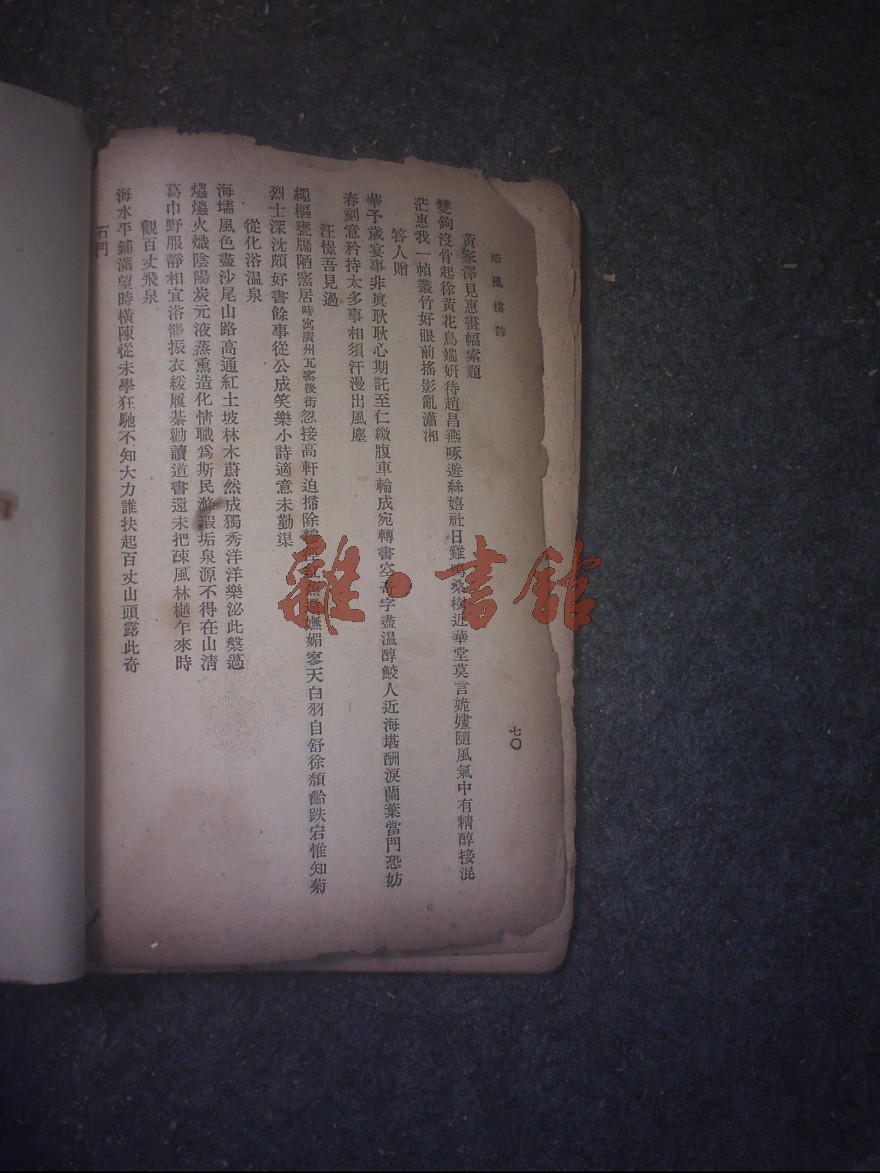 培風樓詩
七〇
黃家澤見惠畫幅索題
雙鉤沒骨起徐黃花鳥端妍待趙昌燕啄遊絲嬉社日雞鳴桑樹近華堂莫言姽嫿隨風氣中有精醇接混
茫惠我一幀叢竹好眼前搖影亂瀟湘
答人贈
華予歲宴事非眞耿耿心期託至仁繳腹車輪成宛轉書空奇字盡温醇鮫人近海堪酬淚蘭葉當門恐妨
春刻意矜持太多事相須汗漫出風塵
汪憬吾見過
繩樞甕牖陋窰居時寓廣州瓦窰後街忽接高軒迫掃除嫵媚寥天白羽自舒徐頹齡跌宕惟知菊
烈士深沈頗好書餘事從公成笑樂小詩適意未勤渠
從化浴溫泉
海壖風色盡沙尾山路高通紅土坡林木蔚然成獨秀洋洋樂泌此槃薖
爞爞火熾陰陽炭元液蒸熏造化情職爲斯民滌瑕垢泉源不得在山淸
葛巾野服靜相宜浴罷振衣綏履綦勸讀道書還未把疎風林樾乍來時
觀百丈飛泉
海水平鋪滿望時橫陳從未學狂馳不知大力誰扶起百丈山頭露此奇
石門
雜·書館